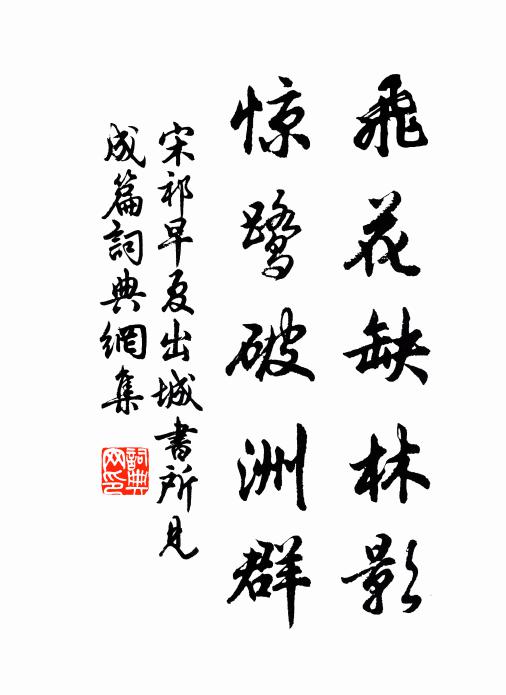 飛花缺林影
惊鹭破洲群
宋祁早夏出城書所見
成篇詞典網集
詞典网印